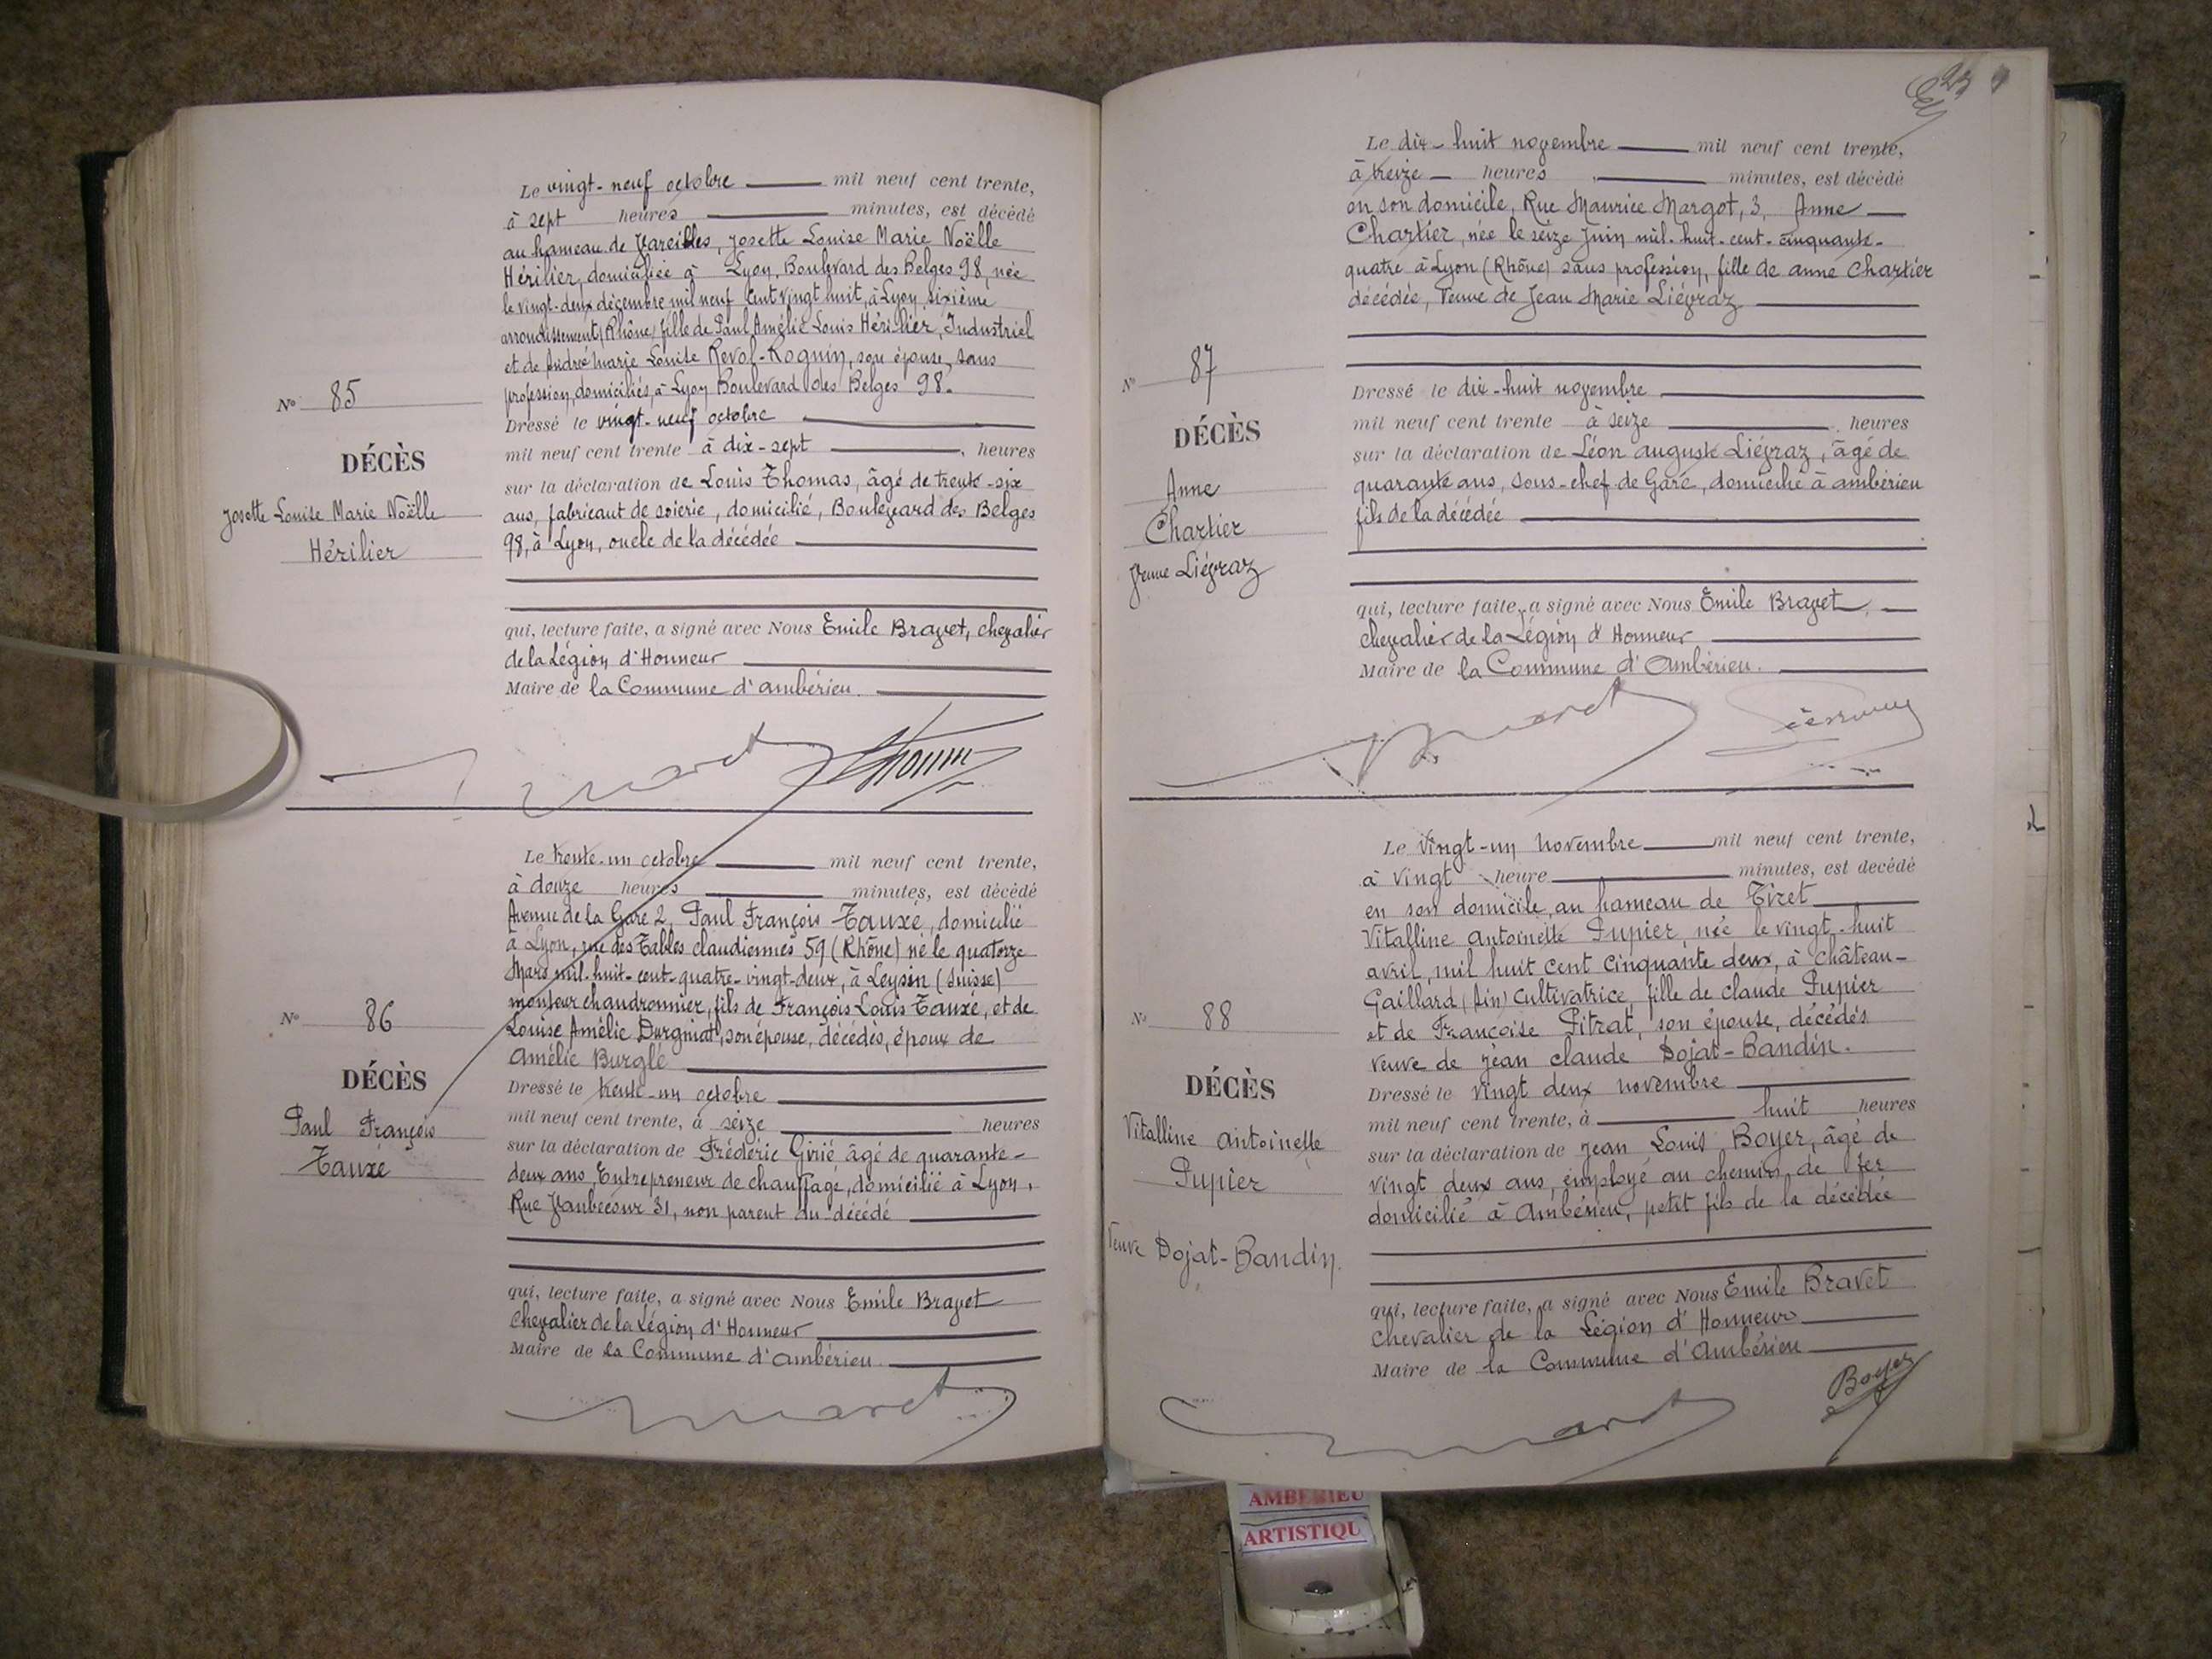 Le vingt-neuf octobre mil neuf cent trente,
à sept heures minutes, est décédé
au hameau de Vareilles, Josette Louise Marie Noëlle
Hérilier, domiciliée à Lyon, Boulevard des Belges 98, née
le vingt-deux décembre mil neuf cent vingt huit, à Lyon sixième
arrondissement (Rhône) fille de Paul Amélie Louis Hérilier, Industriel
et de Andrée Marie Louise Revol-Roguin, son épouse, sans
profession, domiciliés à Lyon Boulevard des Belges 98.
Dressé le vingt-neuf octobre
mil neuf cent trente à dix-sept heures
sur la déclaration de Louis Thomas, âgé de trente-six
ans, fabricant de soierie, domicilié, Boulevard des Belges
98, à Lyon, oncle de la décédée
qui, lecture faite, a signé avec Nous Emile Bravet, chevalier
de la Légion d'Honneur
Maire de la Commune d'Ambérieu.
No 85
DÉCÈS
Josette Louise Marie Noëlle
Hérilier
Le trente-un octobre mil neuf cent trente,
à douze heures minutes, est décédé
Avenue de la Gare 2, Paul François Tauxé, domicilié
à Lyon, rue des Tables claudiennes 59 (Rhône) né le quatorze
Mars mil-huit-cent-quatre-vingt-deux, à Leysin (Suisse)
monteur chaudronnier, fils de François Louis Tauxé, et de
Louise Amélie Durgniat, son épouse, décédés, époux de
Amélie Burglé
Dressé le trente-un octobre
mil neuf cent trente, à seize heures
sur la déclaration de Frédéric Givié âgé de quarante-
deux ans, Entrepreneur de chauffage, domicilié à Lyon,
Rue Vaubecour 31, non parent du décédé
qui, lecture faite, a signé avec Nous Emile Bravet
Chevalier de la Légion d'Honneur
Maire de la Commune d'Ambérieu.
No 86
DÉCÈS
Paul François
Tauxé
Le dix-huit novembre mil neuf cent trente,
à treize heures minutes, est décédé
en son domicile, Rue Maurice Margot, 3, Anne
Chartier, née le seize Juin mil-huit-cent-cinquante-
quatre à Lyon (Rhône) sans profession, fille de anne Chartier
décédée, Veuve de Jean Marie Liégraz
Dressé le dix-huit novembre
mil neuf cent trente à seize heures
sur la déclaration de Léon auguste Liégraz, âgé de
quarante ans, sous-chef de Gare, domicilié à ambérieu
fils de la décédée
qui, lecture faite, a signé avec Nous Emile Bravet,
chevalier de la Légion d'Honneur
Maire de la Commune d'Ambérieu.
No 87
DÉCÈS
Anne
Chartier
Veuve Liégraz
Le vingt-un novembre mil neuf cent trente,
à vingt heure minutes, est décédé
en son domicile, au hameau de Tiret
Vitalline Antoinette Pupier, née le vingt-huit
avril, mil huit cent cinquante deux, à château-
Gaillard (Ain) Cultivatrice, fille de claude Pupier
et de Françoise Pitrat, son épouse, décédés
veuve de jean claude Dojat-Bandin.
Dressé le vingt deux novembre
mil neuf cent trente, à huit heures
sur la déclaration de jean Louis Boyer, âgé de
vingt deux ans, employé au chemins de fer
domicilié à Ambérieu, petit fils de la décédée
qui, lecture faite, a signé avec Nous Emile Bravet
Chevalier de la Légion d'Honneur
Maire de la Commune d'Ambérieu
Boyer
No 88
DÉCÈS
Vitalline Antoinette
Pupier
Veuve Dojat-Bandin.
AMBERIEU
ARTISTIQU